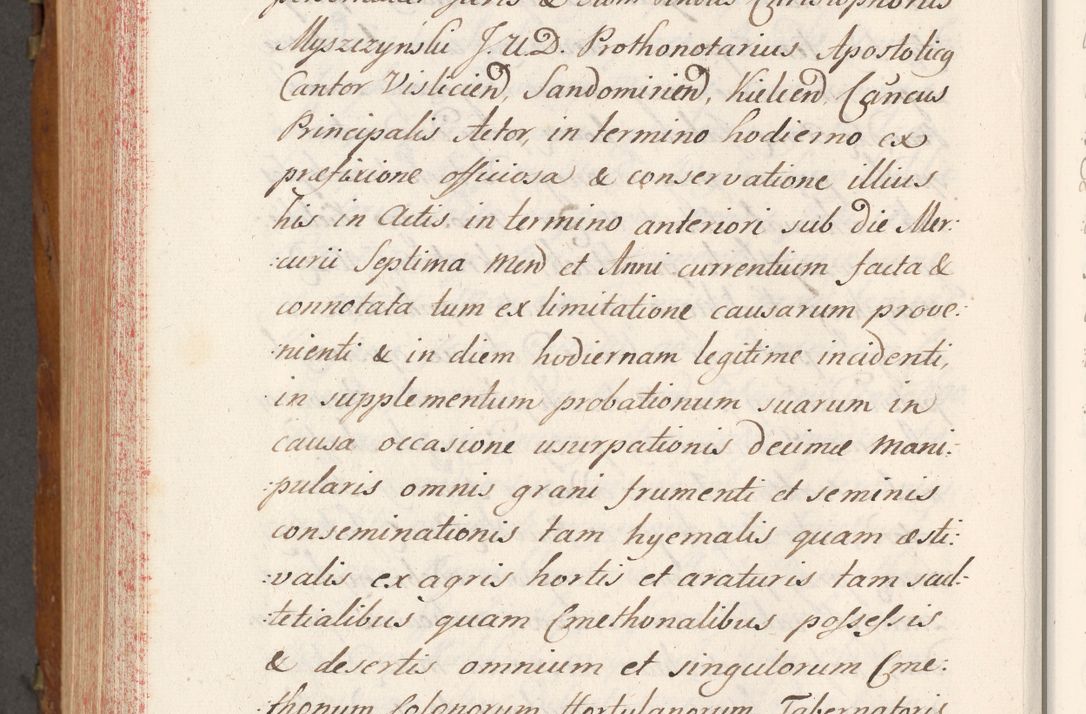 Juris & Christophorus
Myszczynski J.U.D. Prothonotarius Apostolicq
Cantor Vislicien, Sandomirien, Kielcen Cancus
Principalis Actor, in termino hodierno ex
præfixione officiosa & conservatione illius
his in Actis in termino anteriori sub die Mer:
:curii Septima Mens et Anni currentium facta &
connotata tum ex limitatione causarum prove:
:nienti & in diem hodiernam legitime incidenti,
in supplementum probationum suarum in
causa occasione usurpationis decimæ Mani:
:pularis omnis grani frumenti et seminis
conseminationis tam hyemalis quam æsti:
:valis ex agris hortis et araturis tam scul-
:tetialibus quam Cmethonalibus possessis
& desertis omnium et singulorum Cme:
thonum Colonorum Hortulanorum Tabernatoris